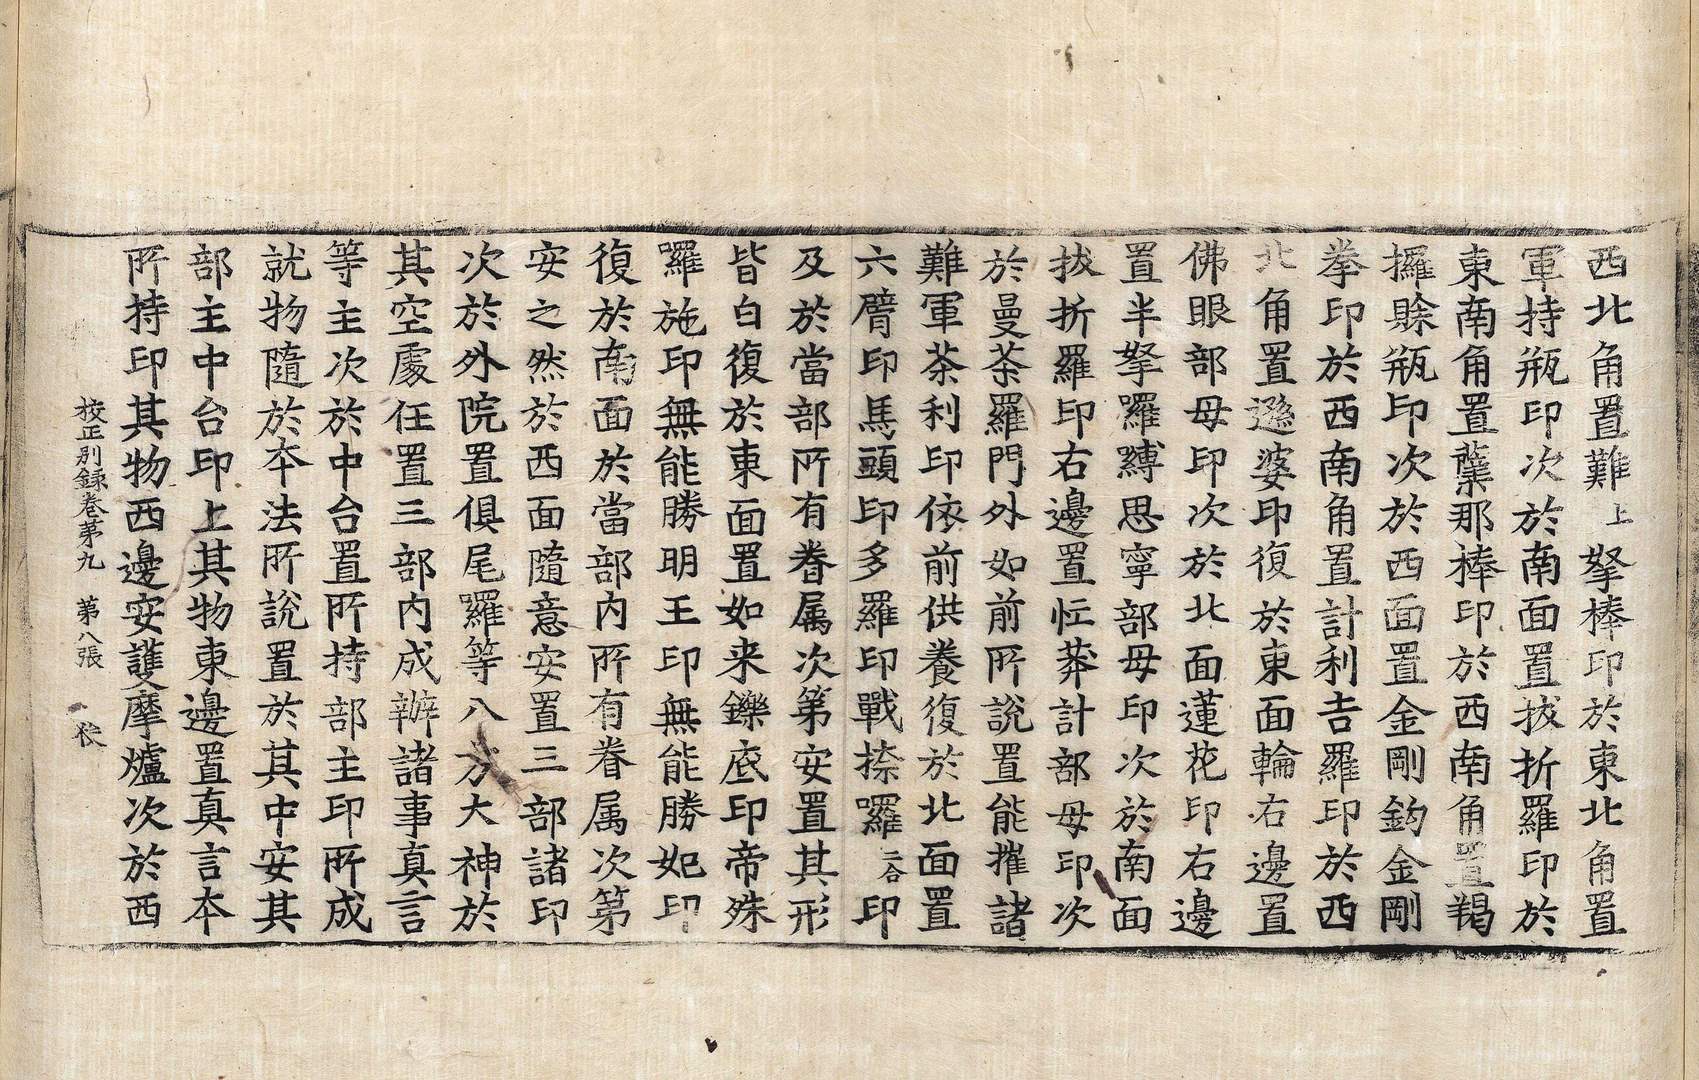 西北角置難上拏棒印於東北角置
軍持瓶印次於南面置拔折羅印於
東南角置蘖那棒印於西南角置羯
攞賒瓶印次於西面置金剛鉤金剛
拳印於西南角置計利吉羅印於西
北角置遜婆印復於東面輪右邊置
佛眼部母印次於北面蓮花印右邊
置半拏囉縛思寧部母印次於南面
拔折羅印右邊置忙莽計部母印次
於曼荼羅門外如前所說置能摧諸
難軍荼利印依前供養復於北面置
六臂印馬頭印多羅印戰捺囉二合印
及於當部所有眷属次第安置其形
皆白復於東面置如来鑠底印帝殊
囉施印無能勝明王印無能勝妃印
復於南面於當部內所有眷属次第
安之然於西面隨意安置三部諸印
次於外院置俱尾羅等八方大神於
其空處任置三部內成辦諸事真言
等主次於中台置所持部主印所成
就物隨於本法所說置於其中安其
部主中台印上其物東邊置真言本
所持印其物西邊安護摩爐次於西
校正別錄卷第九 第八張